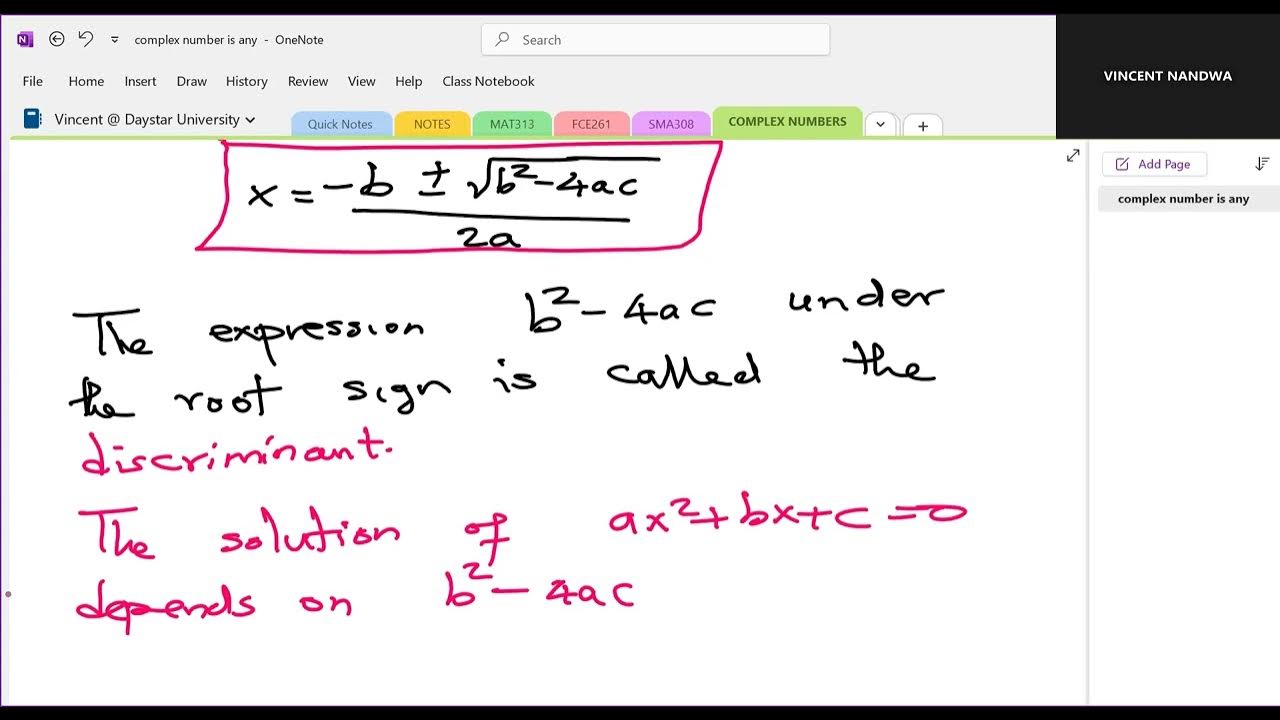 complex number is any - OneNote
Search
VINCENT NANDWA
File Home Insert Draw History Review View Help Class Notebook
Vincent @ Daystar University
Quick Notes NOTES MAT313 FCE261 SMA308 COMPLEX NUMBERS +
Add Page
complex number is any
x = -b ± √b²-4ac
2a
The expression b²-4ac under
the root sign is called the
discriminant.
The solution of ax²+bx+c=0
depends on b²-4ac